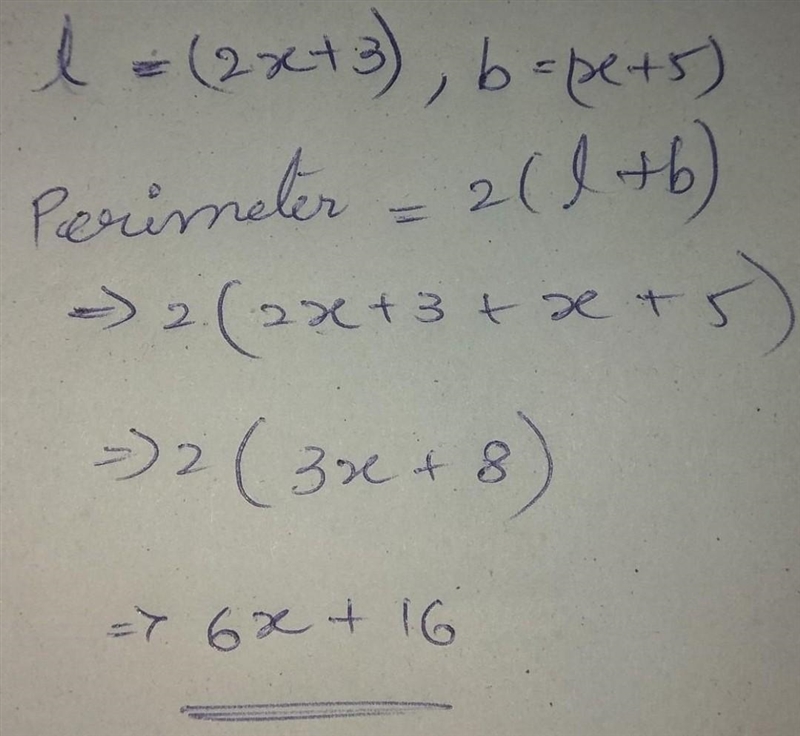 l = (2x+3), b = (x+5)
Perimeter = 2(l+b)
⇒ 2(2x+3+x+5)
⇒ 2(3x+8)
⇒ 6x+16